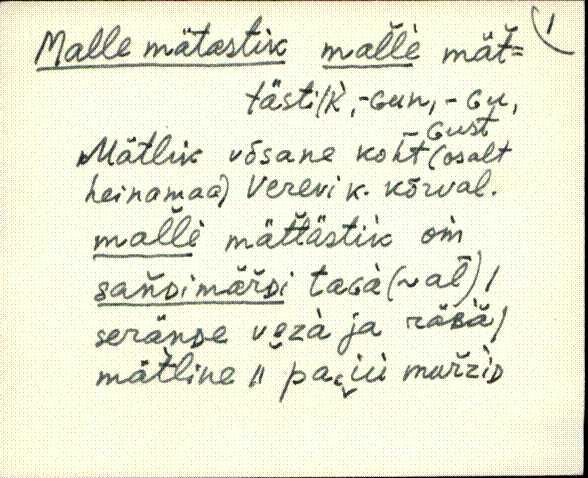 Malle mätastik mal̆l̀e mät̆= 1
tästi/k̀, -GUn, -GU,
-GUst
Mätlik võsane koht (osalt
heinamaa) Verevi k. kõrval.
mal̆l̀e mät̆t̆ästik̀ om̀
san̆Dimär̆Di taGà (~al̆) /
serän̆De vezà ja räBä /
mät̀line // pajiù mur̆zìD